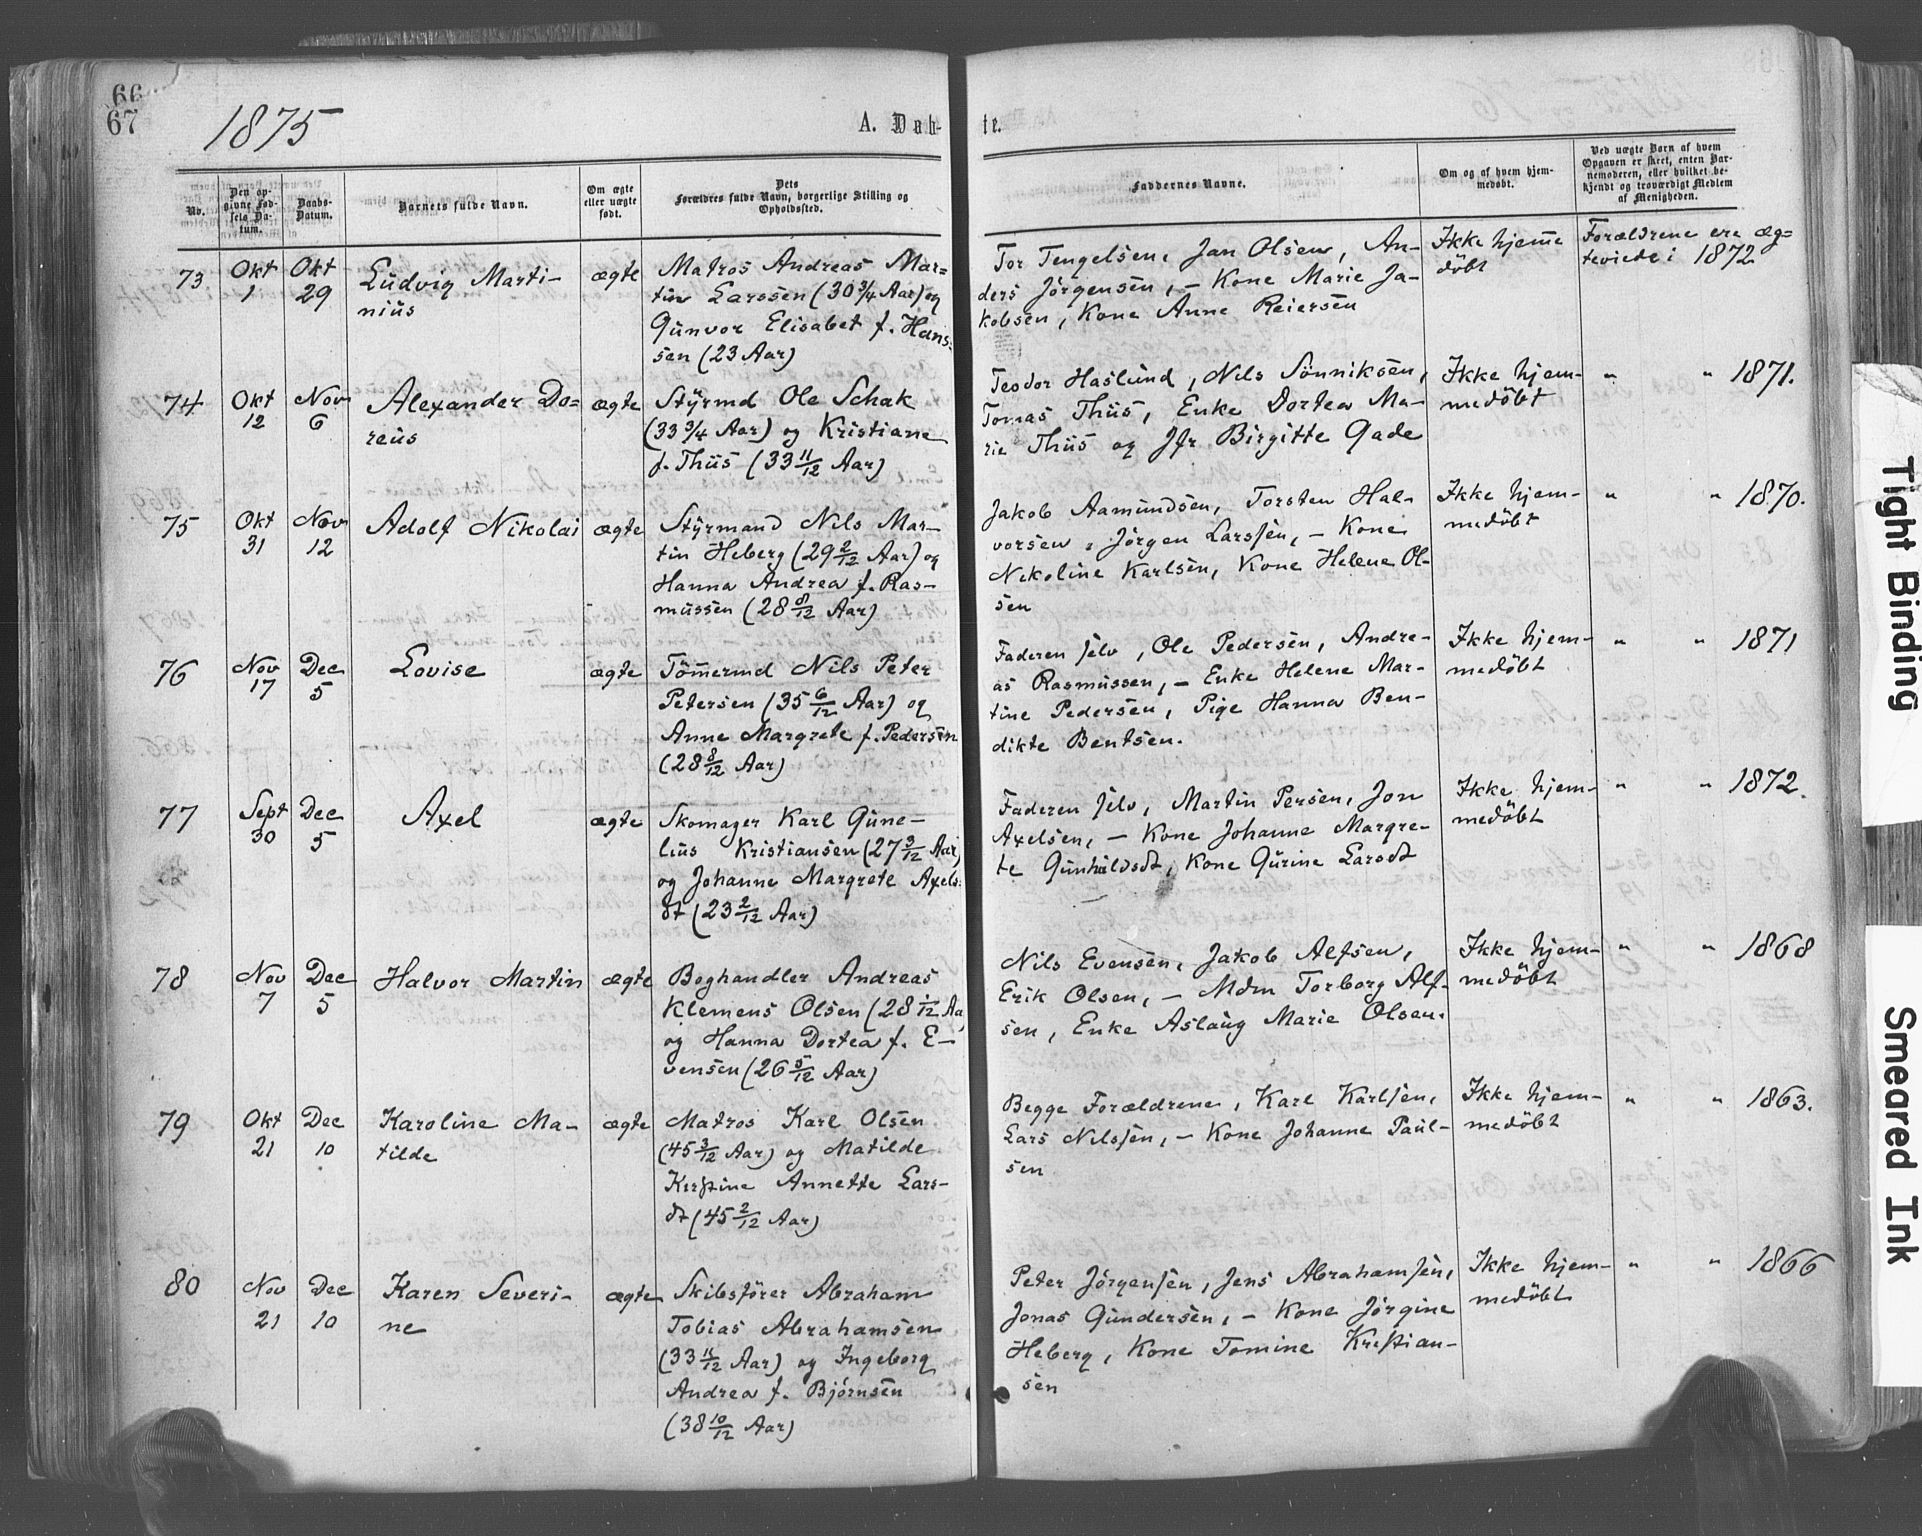 66
67
1875
A. Dåb-
te.
No.
Den op-
givne Fød-
sels Da-
tum.
Daabs-
Datum.
Barnets fulde Navn.
Om ægte
eller uægte
født.
Dets
Forældres fulde Navn, borgerlige Stilling og
Opholdssted.
Faddernes Navne.
Om og af hvem hjem-
medøbt.
Ved uægte Børn af hvem
Opgaven er skeet, enten Bar-
nemoderen, eller hvilket be-
kjendt og troværdigt Medlem
af Menigheden.
73
Okt
1
Okt
29
Ludvig Marti-
nius
ægte
Matros Andreas Mar=
tin Larssen (30 3/4 Aar) og
Gunvor Elisabet f. Hans-
sen (23 Aar)
Tor Tengelsen, Jan Olsen, An-
ders Jörgensen, - Kone Marie Ja-
kobsen, Kone Anne Reiersen
Ikke hjeme
döbt
Forældrene ere æg=
teviede i 1872
74
Okt
12
Nov
6
Alexander Do=
reus
ægte
Styrmd Ole Schak
(33 3/4 Aar) og Kristiane
f. Thiis (33 11/12 Aar)
Teodor Haslund, Nils Sönniksen,
Tomas Thiis, Enke Dortea Ma-
rie Thiis og Jfr Birgitte Gade
Ikke hjem-
medöbt
" " 1871.
75
Okt
31
Nov
12
Adolf Nikolai
ægte
Styrmand Nils Mar-
tin Heberg (29 2/12 Aar) og
Hanna Andrea f. Ras-
mussen (28 8/12 Aar)
Jakob Aamundsen, Torsten Hal-
vorsen, Jörgen Larssen, - Kone
Nikoline Karlsen, Kone Helene Ol-
sen
Ikke hjem-
medöbt
" " 1870.
76
Nov
17
Dec
5
Lovise
ægte
Tömermd Nils Peter
Petersen (35 6/12 Aar) og
Anne Margrete f. Pedersen
(28 8/12 Aar)
Faderen selv, Ole Pedersen, Andre-
as Rasmussen, - Enke Helene Mar-
tine Pedersen, Pige Hanna Ben-
dikte Bentsen.
Ikke hjem-
medöbt
" " 1871
77
Sept
30
Dec
5
Axel
ægte
Skomager Karl Gune-
lius Kristiansen (27 3/12 Aar)
og Johanne Margrete Axels-
dt (23 2/12 Aar)
Faderen selv, Martin Persen, Jon
Axelsen, - Kone Johanne Margre-
te Gunhildsdt, Kone Gurine Larsdt
Ikke hjem-
medöbt
" " 1872.
78
Nov
7
Dec
5
Halvor Martin
ægte
Boghandler Andreas
Klemens Olsen (28 1/12 Aa
og Hanna Dortea f. E-
vensen (26 5/12 Aar)
Nils Evensen, Jakob Alfsen,
Erik Olsen, - Mdm Torborg Alf-
sen, Enke Aslaug Marie Olsen.
Ikke hjem-
medöbt
" " 1868
79
Okt
21
Dec
10
Karoline Ma-
tilde
ægte
Matros Karl Olsen
(45 3/12 Aar) og Matilde
Kirstine Annette Lars-
dt (45 2/12 Aar)
Begge Forældrene, Karl Karlsen,
Lars Nilssen, - Kone Johanne Paul-
sen
Ikke hjem-
medöbt
" " 1863.
80
Nov
21
Dec
10
Karen Severi-
ne
ægte
Skibsförer Abraham
Tobias Abrahamsen
(33 11/12 Aar) og Ingeborg
Andrea f. Björnsen
(38 10/12 Aar)
Peter Jörgensen, Jens Abrahamsen,
Jonas Gundersen, - Kone Jörgine
Heberg, Kone Tomine Kristian-
sen
Ikke hjem-
medöbt
" " 1866
Tight Binding
Smeared Ink